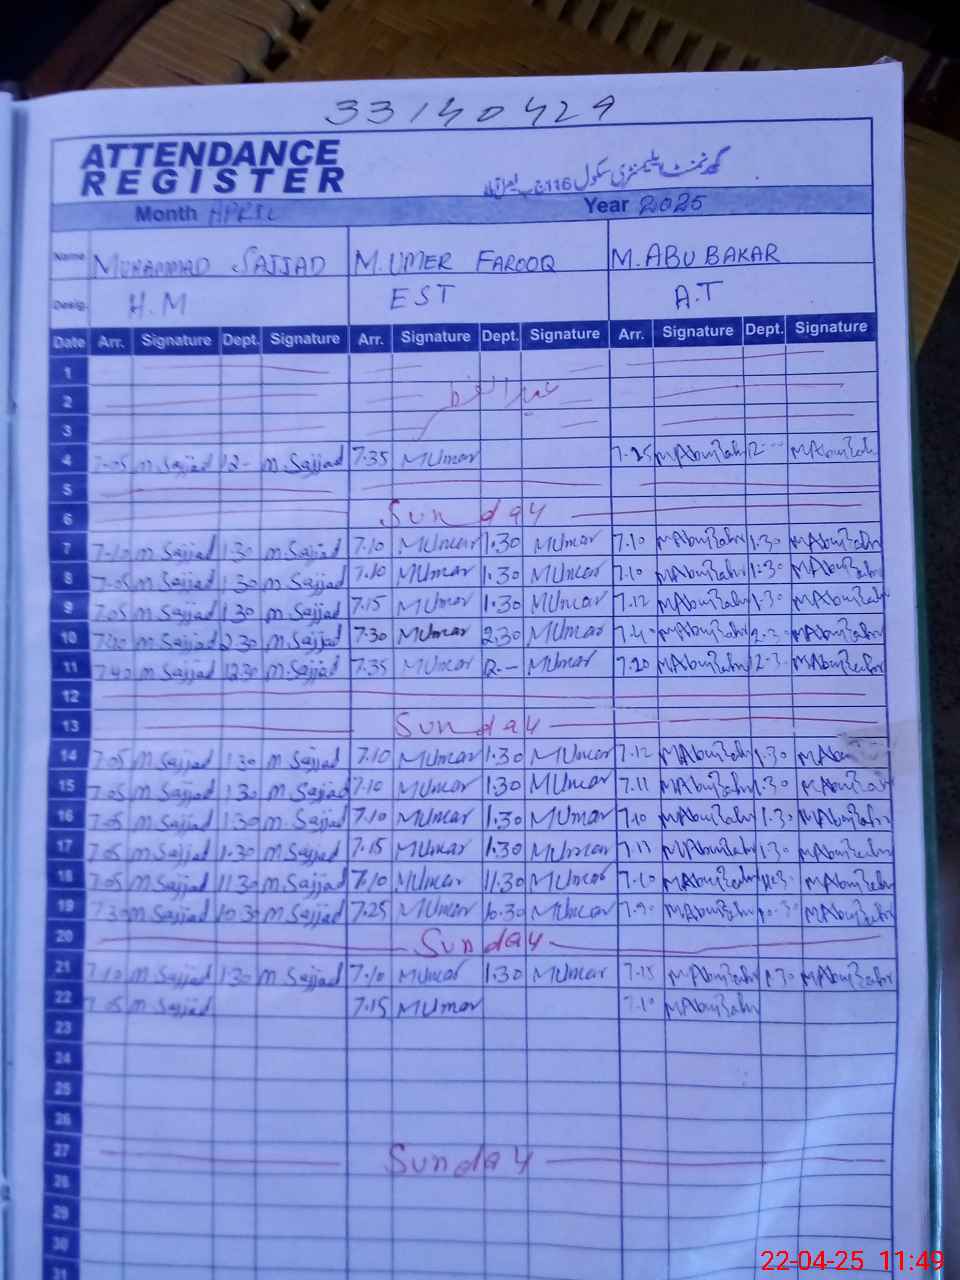 33140429
ATTENDANCE
REGISTER
گورنمنٹ ایلیمنٹری سکول 116 ج ب
Month APRIL Year 2025
Name MUHAMMAD SAJJAD M. UMER FAROOQ M. ABU BAKAR
Desig. H.M EST A.T
Date Arr. Signature Dept. Signature Arr. Signature Dept. Signature Arr. Signature Dept. Signature
1
2 عید الفطر
3
4 7.05 M.Sajjad 12- M.Sajjad 7.35 MUmar 7.25 MAbuBakr 12-- MAbuBakr
5
6 Sunday
7 7.10 M.Sajjad 1.30 M.Sajjad 7.10 MUmar 1.30 MUmar 7.10 MAbuBakr 1.30 MAbuBakr
8 7.05 M.Sajjad 1.30 M.Sajjad 7.10 MUmar 1.30 MUmar 7.10 MAbuBakr 1.30 MAbuBakr
9 7.05 M.Sajjad 1.30 M.Sajjad 7.15 MUmar 1.30 MUmar 7.12 MAbuBakr 1.30 MAbuBakr
10 M.Sajjad 2.30 M.Sajjad 7.30 MUmar 2.30 MUmar MAbuBakr 2.3- MAbuBakr
11 7.40 M.Sajjad 12.30 M.Sajjad 7.35 MUmar 12.- MUmar 7.20 MAbuBakr 12-3- MAbuBakr
12
13 Sunday
14 7.05 M.Sajjad 1.30 M.Sajjad 7.10 MUmar 1.30 MUmar 7.12 MAbuBakr 1.30 MAbu
15 7.05 M.Sajjad 1.30 M.Sajjad 7.10 MUmar 1.30 MUmar 7.11 MAbuBakr 1.30 MAbuBakr
16 7.05 M.Sajjad 1.30 M.Sajjad 7.10 MUmar 1.30 MUmar 7.10 MAbuBakr 1.30 MAbuBakr
17 7.05 M.Sajjad 1.30 M.Sajjad 7.15 MUmar 1.30 MUmar 7.11 MAbuBakr 1.30 MAbuBakr
18 7.05 M.Sajjad 11.30 M.Sajjad 7.10 MUmar 11.30 MUmar 7.10 MAbuBakr 11.3- MAbuBakr
19 7.30 M.Sajjad 10.30 M.Sajjad 7.25 MUmar 10.30 MUmar MAbuBakr 10.30 MAbuBakr
20 Sunday
21 7.10 M.Sajjad 1.30 M.Sajjad 7.10 MUmar 1.30 MUmar 7.15 MAbuBakr 1.30 MAbuBakr
22 7.05 M.Sajjad 7.15 MUmar 7.10 MAbuBakr
23
24
25
26
27 Sunday
28
29
30
31
22-04-25 11:49